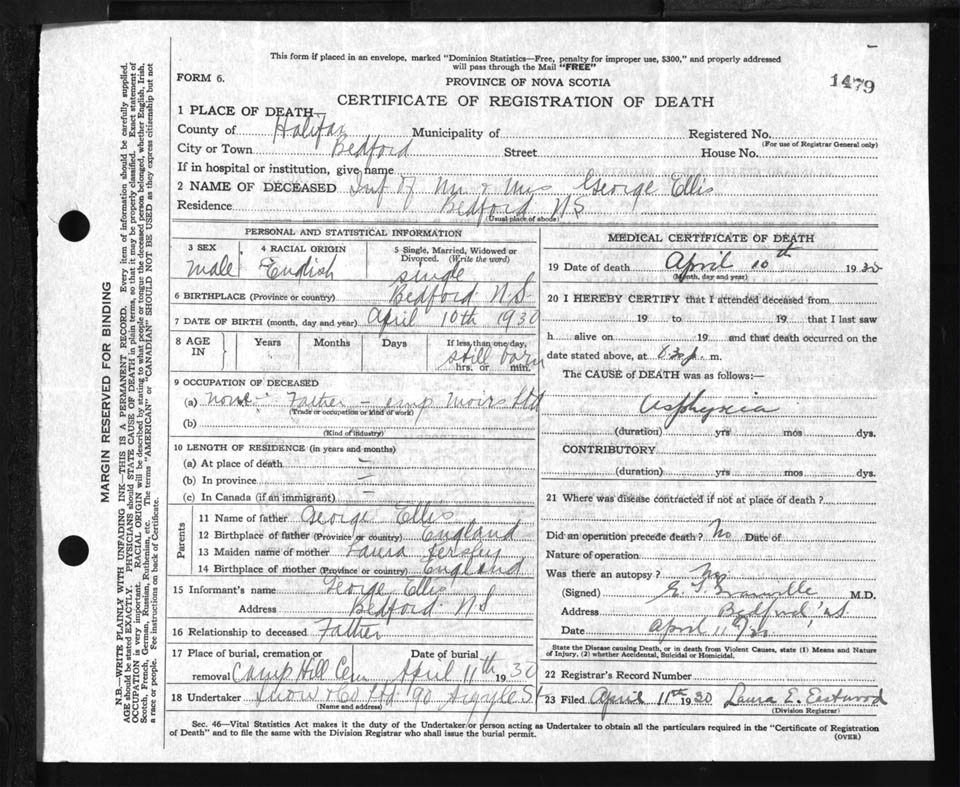 This form if placed in an envelope, marked "Dominion Statistics—Free, penalty for improper use, $300," and properly addressed
will pass through the Mail "FREE"
FORM 6.
PROVINCE OF NOVA SCOTIA
1479
CERTIFICATE OF REGISTRATION OF DEATH
1 PLACE OF DEATH—
County of Halifax Municipality of Registered No.
(For use of Registrar General only)
City or Town Bedford Street House No.
If in hospital or institution, give name
2 NAME OF DECEASED Inf of Mr & Mrs George Ellis
Residence Bedford N S
(Usual place of abode)
PERSONAL AND STATISTICAL INFORMATION
3 SEX 4 RACIAL ORIGIN 5 Single, Married, Widowed or
Divorced. (Write the word)
male English single
6 BIRTHPLACE (Province or country) Bedford N S
7 DATE OF BIRTH (month, day and year) April 10th 1930
8 AGE IN Years Months Days If less than one day,
still born
hrs. or min.
9 OCCUPATION OF DECEASED
(a) none - Father - emp Moirs Ltd
(Trade or occupation or kind of work)
(b)
(Kind of industry)
10 LENGTH OF RESIDENCE (in years and months)
(a) At place of death —
(b) In province —
(c) In Canada (if an immigrant)
Parents
11 Name of father George Ellis
12 Birthplace of father (Province or country) England
13 Maiden name of mother Laura
14 Birthplace of mother (Province or country) England
15 Informant's name George Ellis
Address Bedford N S
16 Relationship to deceased Father
17 Place of burial, cremation or Date of burial
removal Camp Hill Cem April 11th 1930
18 Undertaker Snow & Co Ltd 90 Argyle St
(Name and address)
MEDICAL CERTIFICATE OF DEATH
19 Date of death April 10th 1930
(Month, day and year)
20 I HEREBY CERTIFY that I attended deceased from
19 to 19 that I last saw
h alive on 19 and that death occurred on the
date stated above, at 8.30 p. m.
The CAUSE of DEATH was as follows:—
Asphyxia
(duration) yrs mos dys.
CONTRIBUTORY
(duration) yrs mos dys.
21 Where was disease contracted if not at place of death?
Did an operation precede death? No Date of
Nature of operation
Was there an autopsy? No
(Signed) M.D.
Address Bedford, N.S.
Date April 11
State the Disease causing Death, or in death from Violent Causes, state (1) Means and Nature
of Injury, (2) whether Accidental, Suicidal or Homicidal.
22 Registrar's Record Number
23 Filed April 11th 1930 Laura E. Eastwood
(Division Registrar)
Sec. 46—Vital Statistics Act makes it the duty of the Undertaker or person acting as Undertaker to obtain all the particulars required in the "Certificate of Registration
of Death" and to file the same with the Division Registrar who shall issue the burial permit.
(OVER)
MARGIN RESERVED FOR BINDING
N.B.—WRITE PLAINLY WITH UNFADING INK—THIS IS A PERMANENT RECORD. Every item of information should be carefully supplied.
AGE should be stated EXACTLY. PHYSICIANS should STATE CAUSE OF DEATH in plain terms, so that it may be properly classified. Exact statement of
OCCUPATION is very important. RACIAL ORIGIN will be described by stating to what people or tongue the deceased person belonged, whether English, Irish,
Scotch, French, German, Russian, Ruthenian, etc. The terms "AMERICAN" or "CANADIAN" SHOULD NOT BE USED as they express citizenship but not
a race or people. See instructions on back of Certificate.